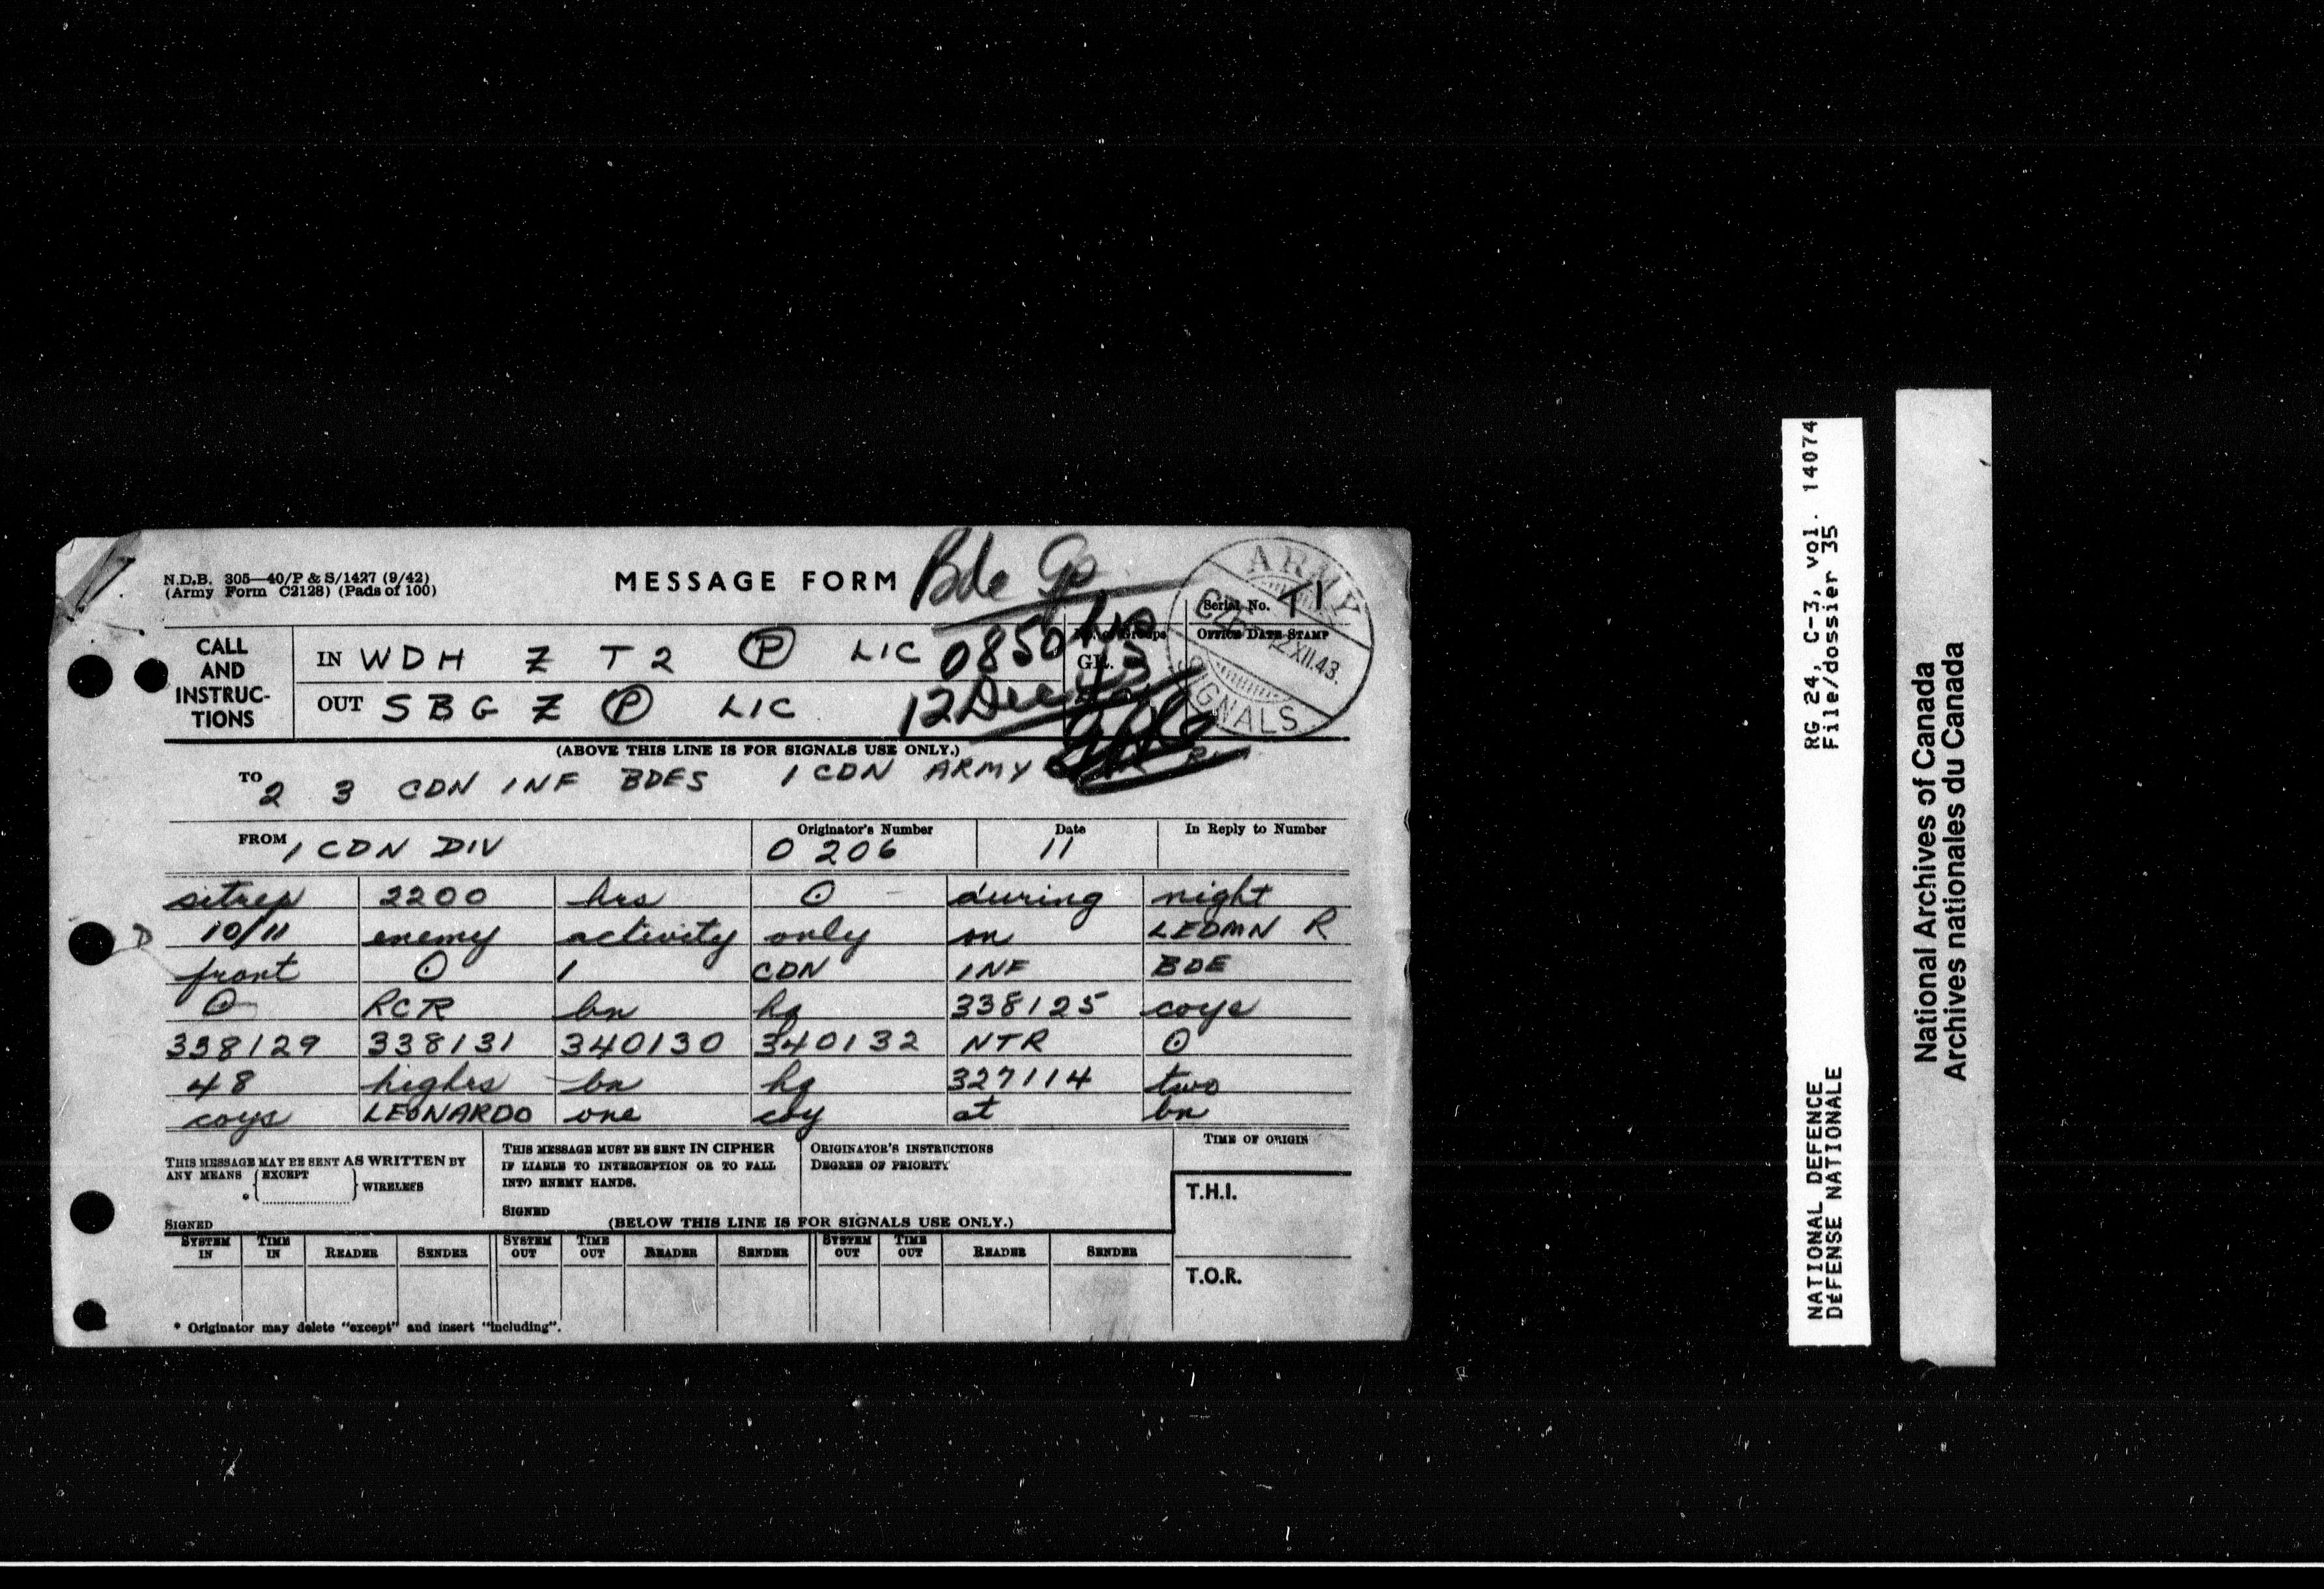 N.D.B. 305—40/P & S/1427 (9/42)
(Army Form C2128) (Pads of 100)
MESSAGE FORM
Bde Gp
Serial No. 11
ARMY
SIGNALS
CALL AND INSTRUCTIONS
IN WDH Z T2 (P) LIC
0850 hrs
No. of Groups
GR.
OFFICE DATE STAMP
12 XII.43.
OUT SBG Z (P) LIC
12 Dec 43
(ABOVE THIS LINE IS FOR SIGNALS USE ONLY.)
TO 2 3 CDN INF BDES 1 CDN ARMY
FROM 1 CDN DIV
Originator's Number 0 206
Date 11
In Reply to Number
sitrep 2200 hrs ⊙ during night
10/11 enemy activity only on LEOMN R
front ⊙ 1 CDN INF BDE
⊙ RCR bn hq 338125 coys
338129 338131 340130 340132 NTR ⊙
48 highrs bn hq 327114 two
coys LEONARDO one coy at bn
THIS MESSAGE MAY BE SENT AS WRITTEN BY
ANY MEANS * (EXCEPT ..........) WIRELESS
SIGNED
THIS MESSAGE MUST BE SENT IN CIPHER
IF LIABLE TO INTERCEPTION OR TO FALL
INTO ENEMY HANDS.
SIGNED
ORIGINATOR'S INSTRUCTIONS
DEGREE OF PRIORITY
TIME OF ORIGIN
T.H.I.
(BELOW THIS LINE IS FOR SIGNALS USE ONLY.)
SYSTEM IN TIME IN READER SENDER SYSTEM OUT TIME OUT READER SENDER SYSTEM OUT TIME OUT READER SENDER
T.O.R.
* Originator may delete "except" and insert "including".
NATIONAL DEFENCE RG 24, C-3, vol. 14074
DÉFENSE NATIONALE File/dossier 35
National Archives of Canada
Archives nationales du Canada